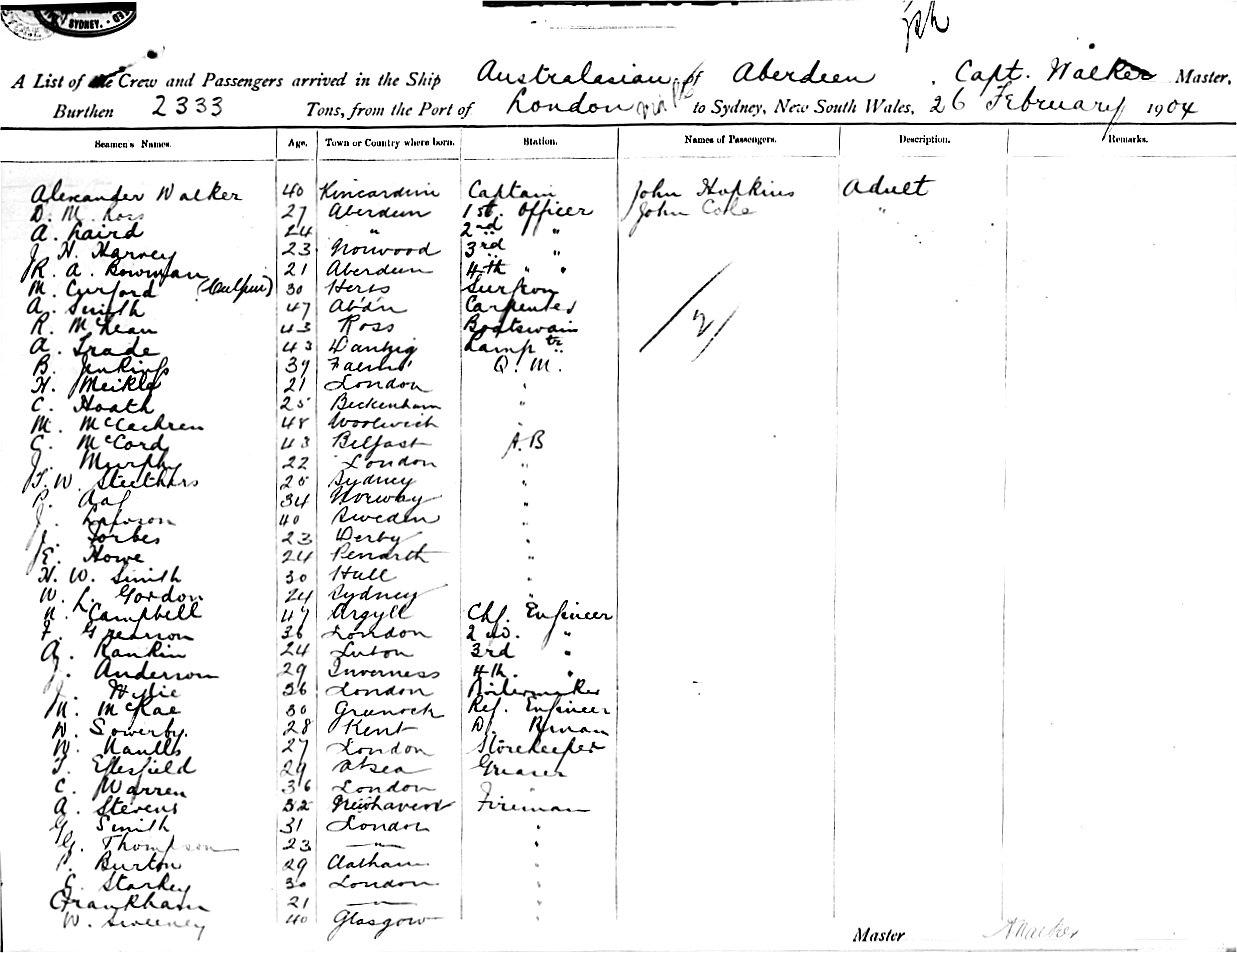 SYDNEY.
A List of the Crew and Passengers arrived in the Ship Australasian of Aberdeen, Capt. Walker Master,
Burthen 2333 Tons, from the Port of London to Sydney, New South Wales, 26 February 1904
Seamen's Names. Age. Town or Country where born. Station. Names of Passengers. Description. Remarks.
Alexander Walker 40 Kincardine Captain John Hopkins Adult
D. M. Ross 27 Aberdeen 1st. Officer John Cole "
A. Laird 24 " 2nd "
J. H. Harvey 23 Norwood 3rd "
R. A. Bowman 21 Aberdeen 4th " "
M. Curford (Culpin) 30 Herts Surgeon
A. Smith 47 Abdn Carpenter
R. McLean 43 Ross Boatswain
A. Trade 43 Dantzig Lamp tr.
B. Jenkins 39 Q. M.
H. Meikle 21 London "
C. Hoath 25 Beckenham "
M. McEachren 48 Woolwich "
C. McCord 43 Belfast A. B
J. Murphy 22 London "
T. W. Steethars 25 Sydney "
P. Aaf 34 Norway "
J. 40 Sweden "
J. Forbes 23 Derby "
E. Howe 24 Penarth "
H. W. Smith 30 Hull "
W. L. Gordon 24 Sydney "
N. Campbell 47 Argyll Chf. Engineer
F. Grearson 36 London 2nd. "
A. Rankin 24 Luton 3rd "
J. Anderson 29 Inverness 4th. "
J. Hylie 36 London Boilermaker
N. McRae 30 Greenock Ref. Engineer
W. Sowerby. 28 Kent
W. Naulls 27 London Storekeeper
T. Effesfield 29 Greaser
C. Warren 36 London "
A. Stevens 32 Newhaven Fireman
G. Smith 31 London "
G. Thompson 23 " "
P. Burton 29 Chatham "
C. Starkey 30 London "
Frankham 21 " "
W. Sweeney 40 Glasgow "
Master A Walker